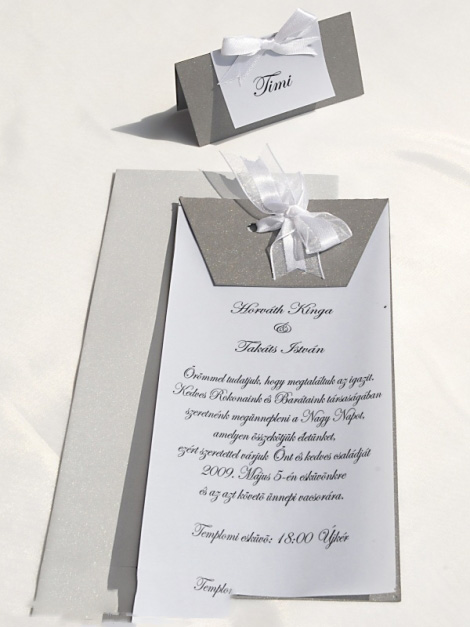 Timi
Horváth Kinga
&
Takáts István
Örömmel tudatjuk, hogy megtaláltuk az igazit.
Kedves Rokonaink és Barátaink társaságában
szeretnénk megünnepelni a Nagy Napot,
amelyen összekötjük életünket,
ezért szeretettel várjuk Önt és kedves családját
2009. Május 5-én esküvőnkre
és az azt követő ünnepi vacsorára.
Templomi esküvő: 18:00 Újkér